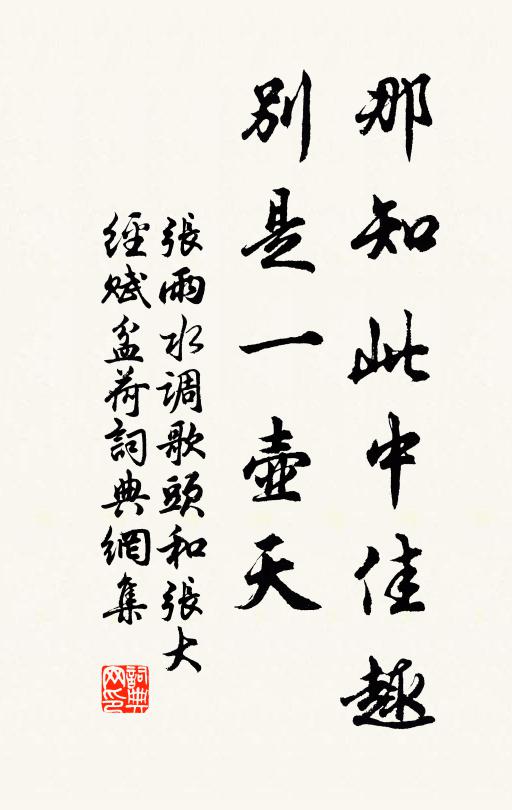 那知此中佳趣
別是一壺天
張雨水调歌頭和張大
經賦盆荷詞典網集
詞典
网印